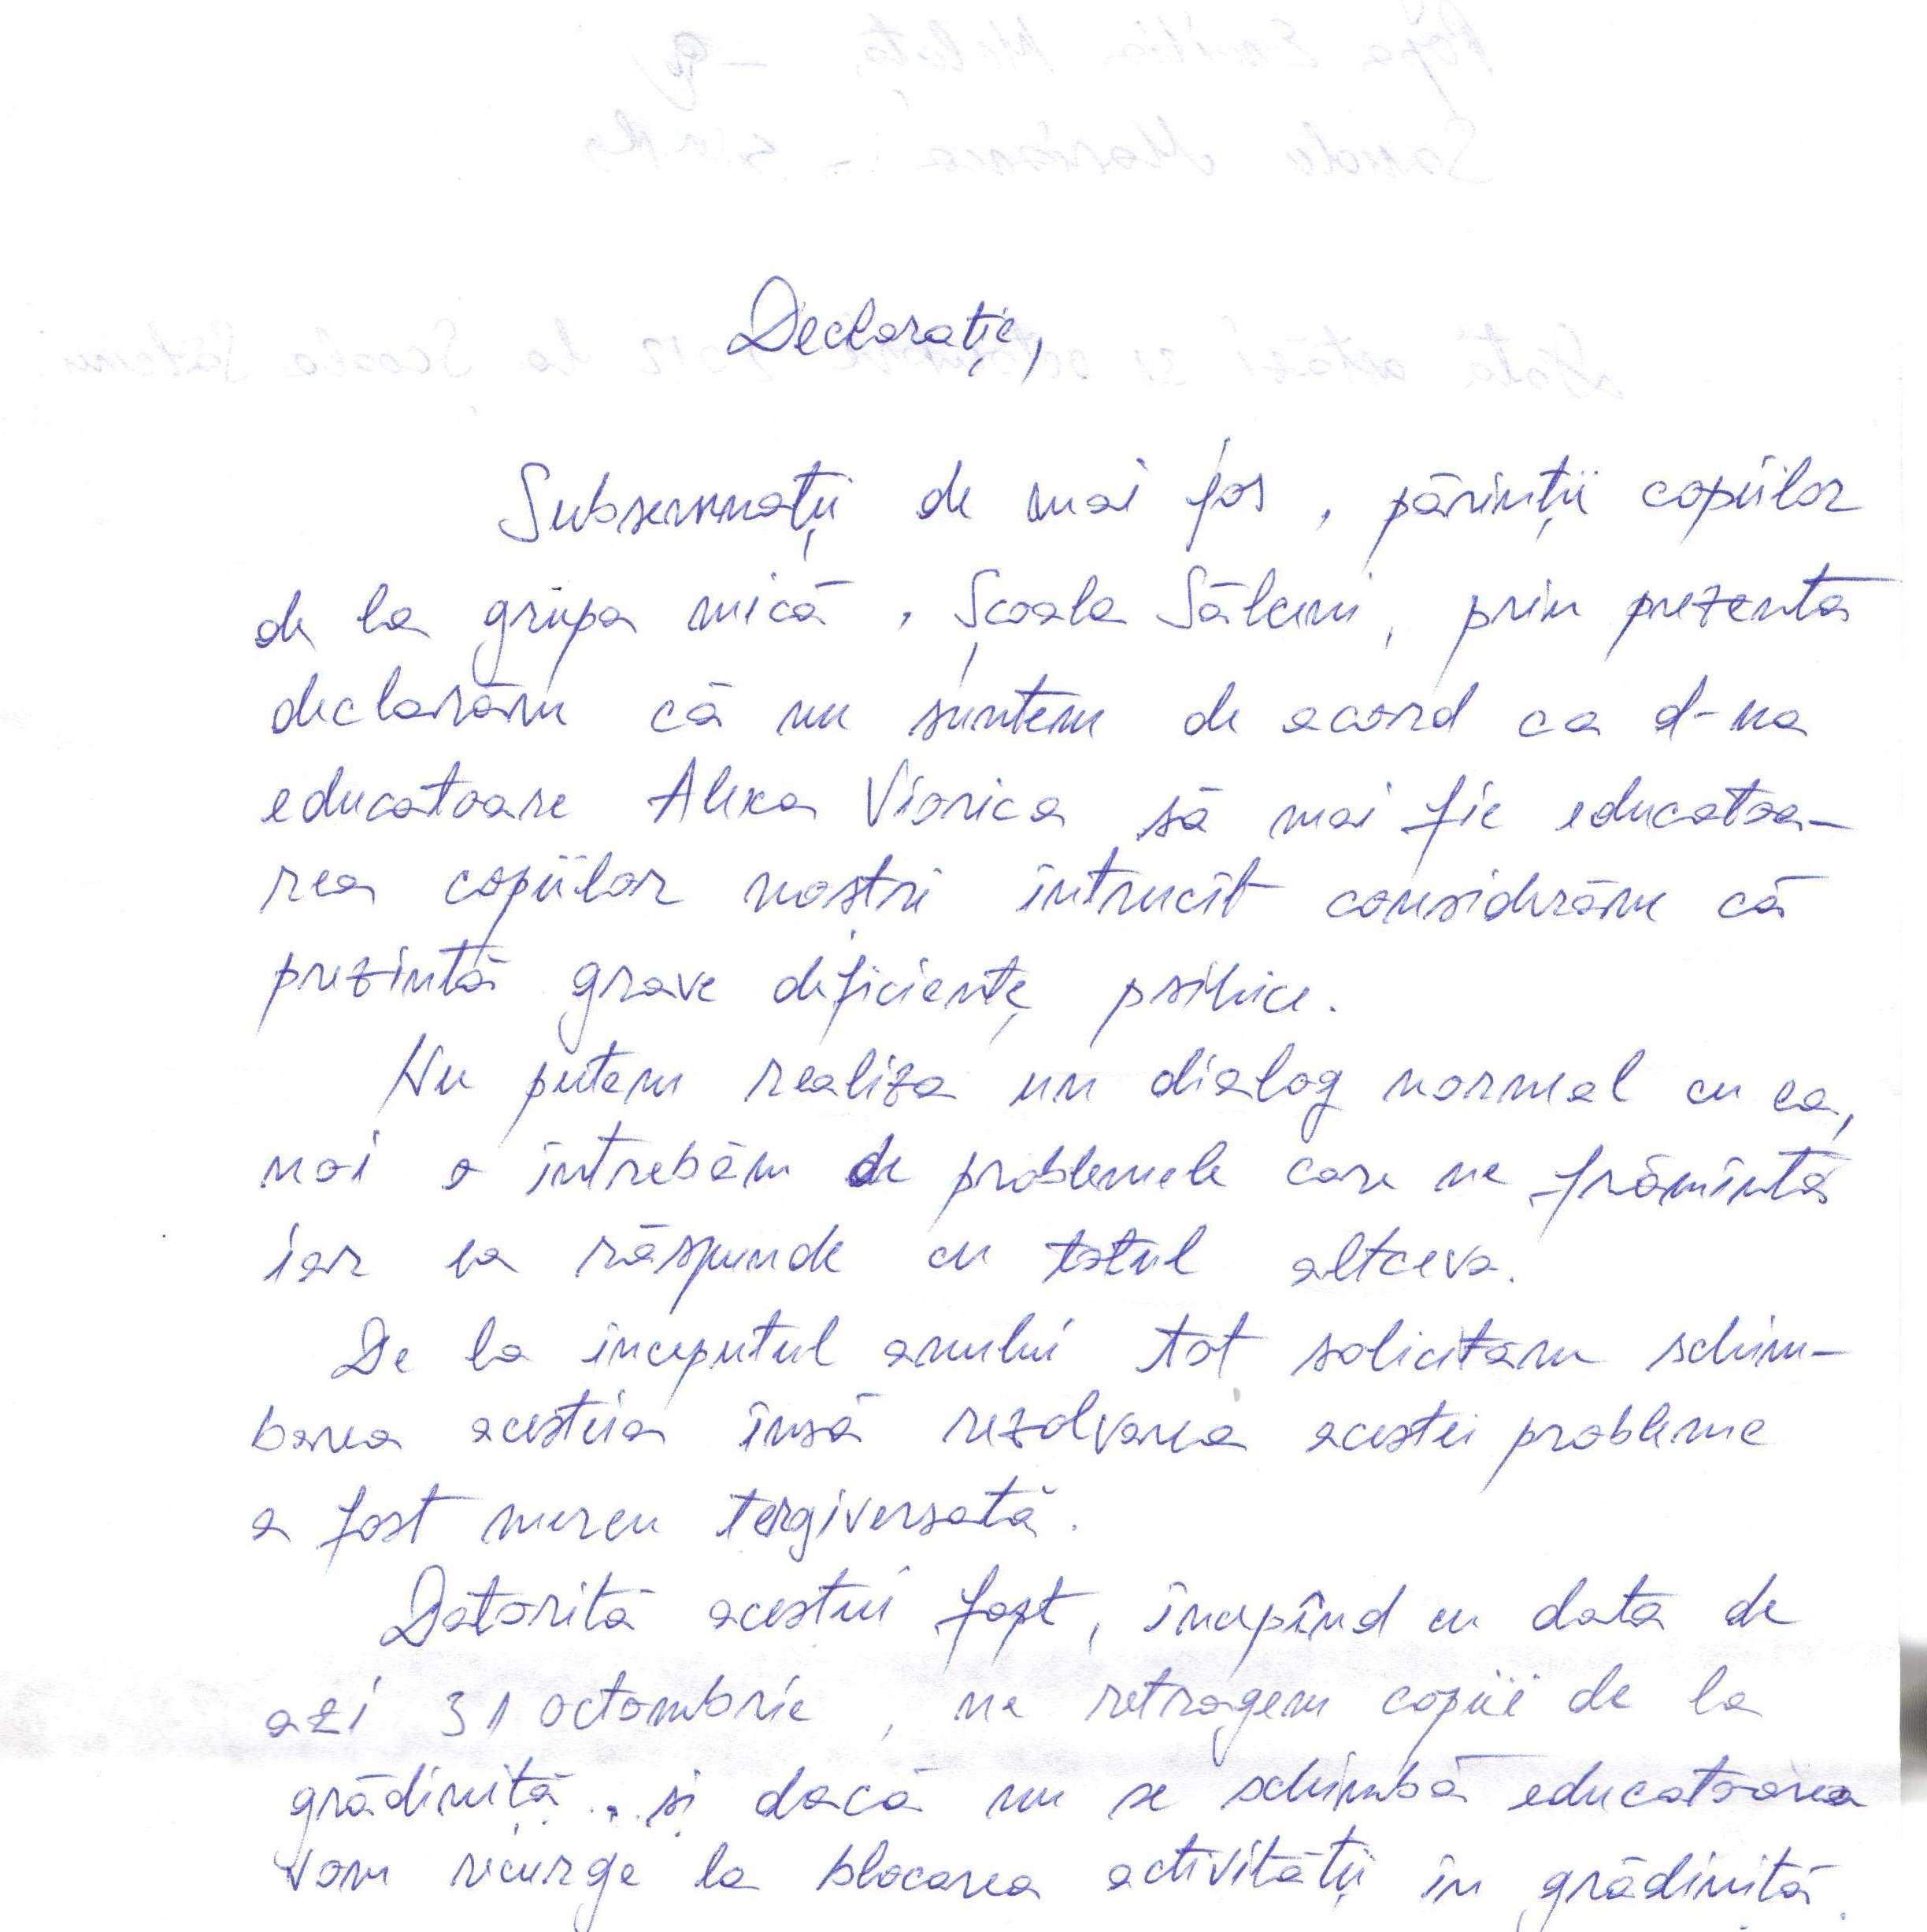 Declarație,
Subsemnații de mai jos, părinții copiilor
de la grupa mică, Școala Sălcuri, prin prezenta
declarăm că nu suntem de acord ca d-na
educatoare Alexa Viorica să mai fie educatoa-
rea copiilor noștri întrucît considerăm că
prezintă grave deficiențe psihice.
Nu putem realiza un dialog normal cu ea,
noi o întrebăm de problemele care ne frămîntă
iar ea răspunde cu totul altceva.
De la începutul anului tot solicităm schim-
barea acesteia însă rezolvarea acestei probleme
a fost mereu tergiversată.
Datorită acestui fapt, începînd cu data de
azi 31 octombrie, ne retragem copiii de la
grădiniță.. și dacă nu se schimbă educatoarea
vom recurge la blocarea activității în grădiniță.